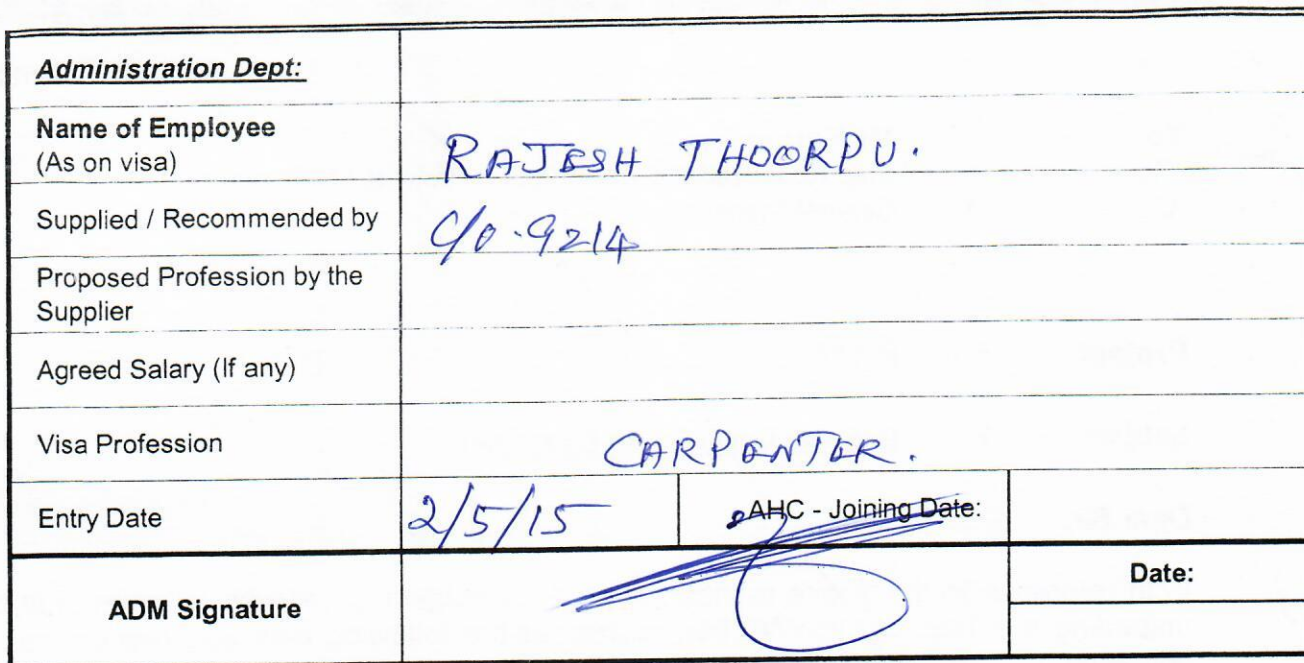 Administration Dept:
Name of Employee
(As on visa)
RAJESH THOORPU.
Supplied / Recommended by
C/o. 9214
Proposed Profession by the
Supplier
Agreed Salary (If any)
Visa Profession
CARPENTER.
Entry Date
2/5/15
AHC - Joining Date:
ADM Signature
Date: